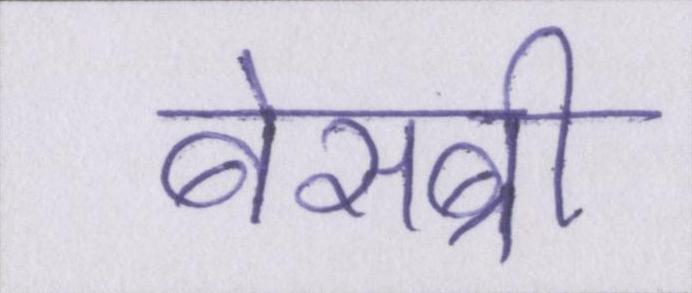 बेसब्री